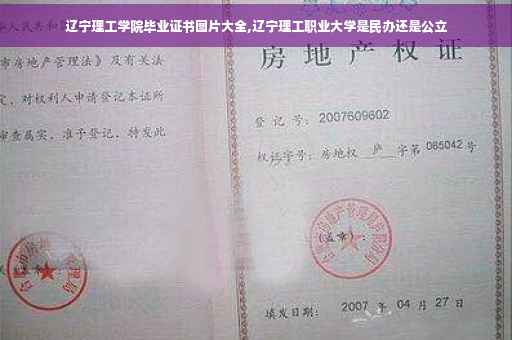 辽宁理工学院毕业证书图片大全,辽宁理工职业大学是民办还是公立
人民共和
市房地产管理法》及有关法
定，对权利人申请登记本证所
审查属实，准予登记，特发此
房地产权证
登 记 号：2007609602
权证字号：房地权 庐 字第 065042 号
(盖章)：
填发日期： 2007 年 04 月 27 日